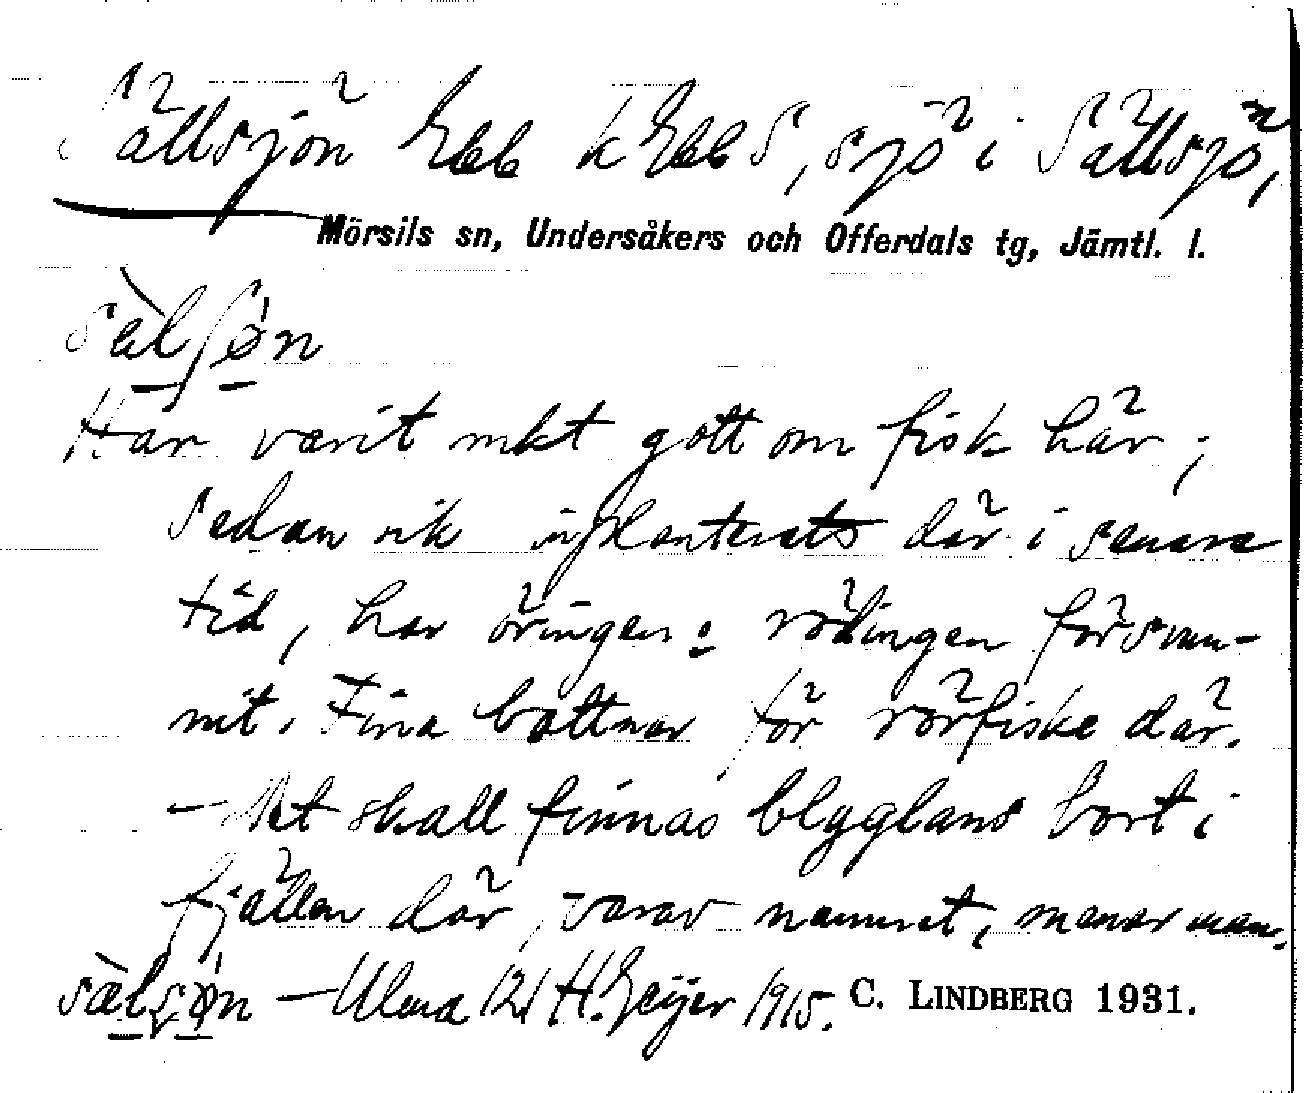 Sällsjön Ebb k Ebb S, sjö i Sällsjön,
Mörsils sn, Undersåkers och Offerdals tg, Jämtl. l.
sæ̀lʃøn
Har varit mkt gott om fisk här;
sedan sik inplanterats där i senare
tid, har öringen o rödingen försvun-
nit. Fina bottnar för rörfiske där.
– Det skall finnas blyglans bort i
fjällen där, varav namnet, menar man.
– Ulma 121 H. Geijer 1915. C. LINDBERG 1931.